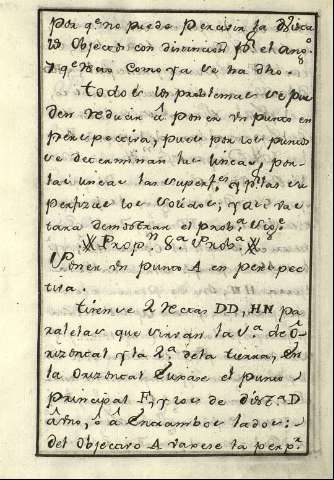 por q.e no puedo percivir la
Objectos con distincion p.r el ang.o
y q.e claro como ya se ha dho.
Todos los problemas se pue
den reducir â poner un punto en
perspectiva, pues por los puntos
se determinan las lineas, por
las lineas las superf.es, y p.r las su
perficies los solidos; y asi vas
tara demostrar el prob.a sig.e
Prop.n 8.a Prob.a
Poner un punto A en perspec
tiva.
tirense 2 rectas DD, HN pa
ralelas que sirvan la 1.a de O
rizontal y la 2.a dela tierra, en
la Orizontal elixase el punto
Principal F, y los de dist.a D
â uno, ô â entrambos lados:
del Objectivo A vajese la perp.r